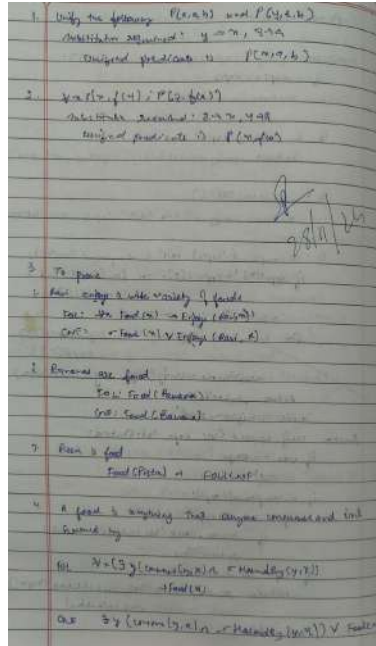 1. Unify the following P(x,a,b) and P(y,a,b)
substitution required: y → x,
Unified predicate is P(x,a,b)
2.
substitution required:
Unified predicate is P(x,f(x))
28/11/24
3. To prove
1. Ravi enjoys a wide variety of foods
FOL: ∀x Food(x) → Enjoys (Ravi,x)
CNF: ¬Food (x) ∨ Enjoys (Ravi, x)
2. Bananas are food
FOL: Food (Banana)
CNF: Food (Banana)
3. is food
Food (Pizza)
4. A food is anything that anyone consumes and isn't
harmed by
FOL (∃y (consumes(y,x) ∧ ¬HarmedBy(y,x))
→ Food(x)
CNF ∃y (consume(y,x) ∧ ¬HarmedBy(y,x)) ∨